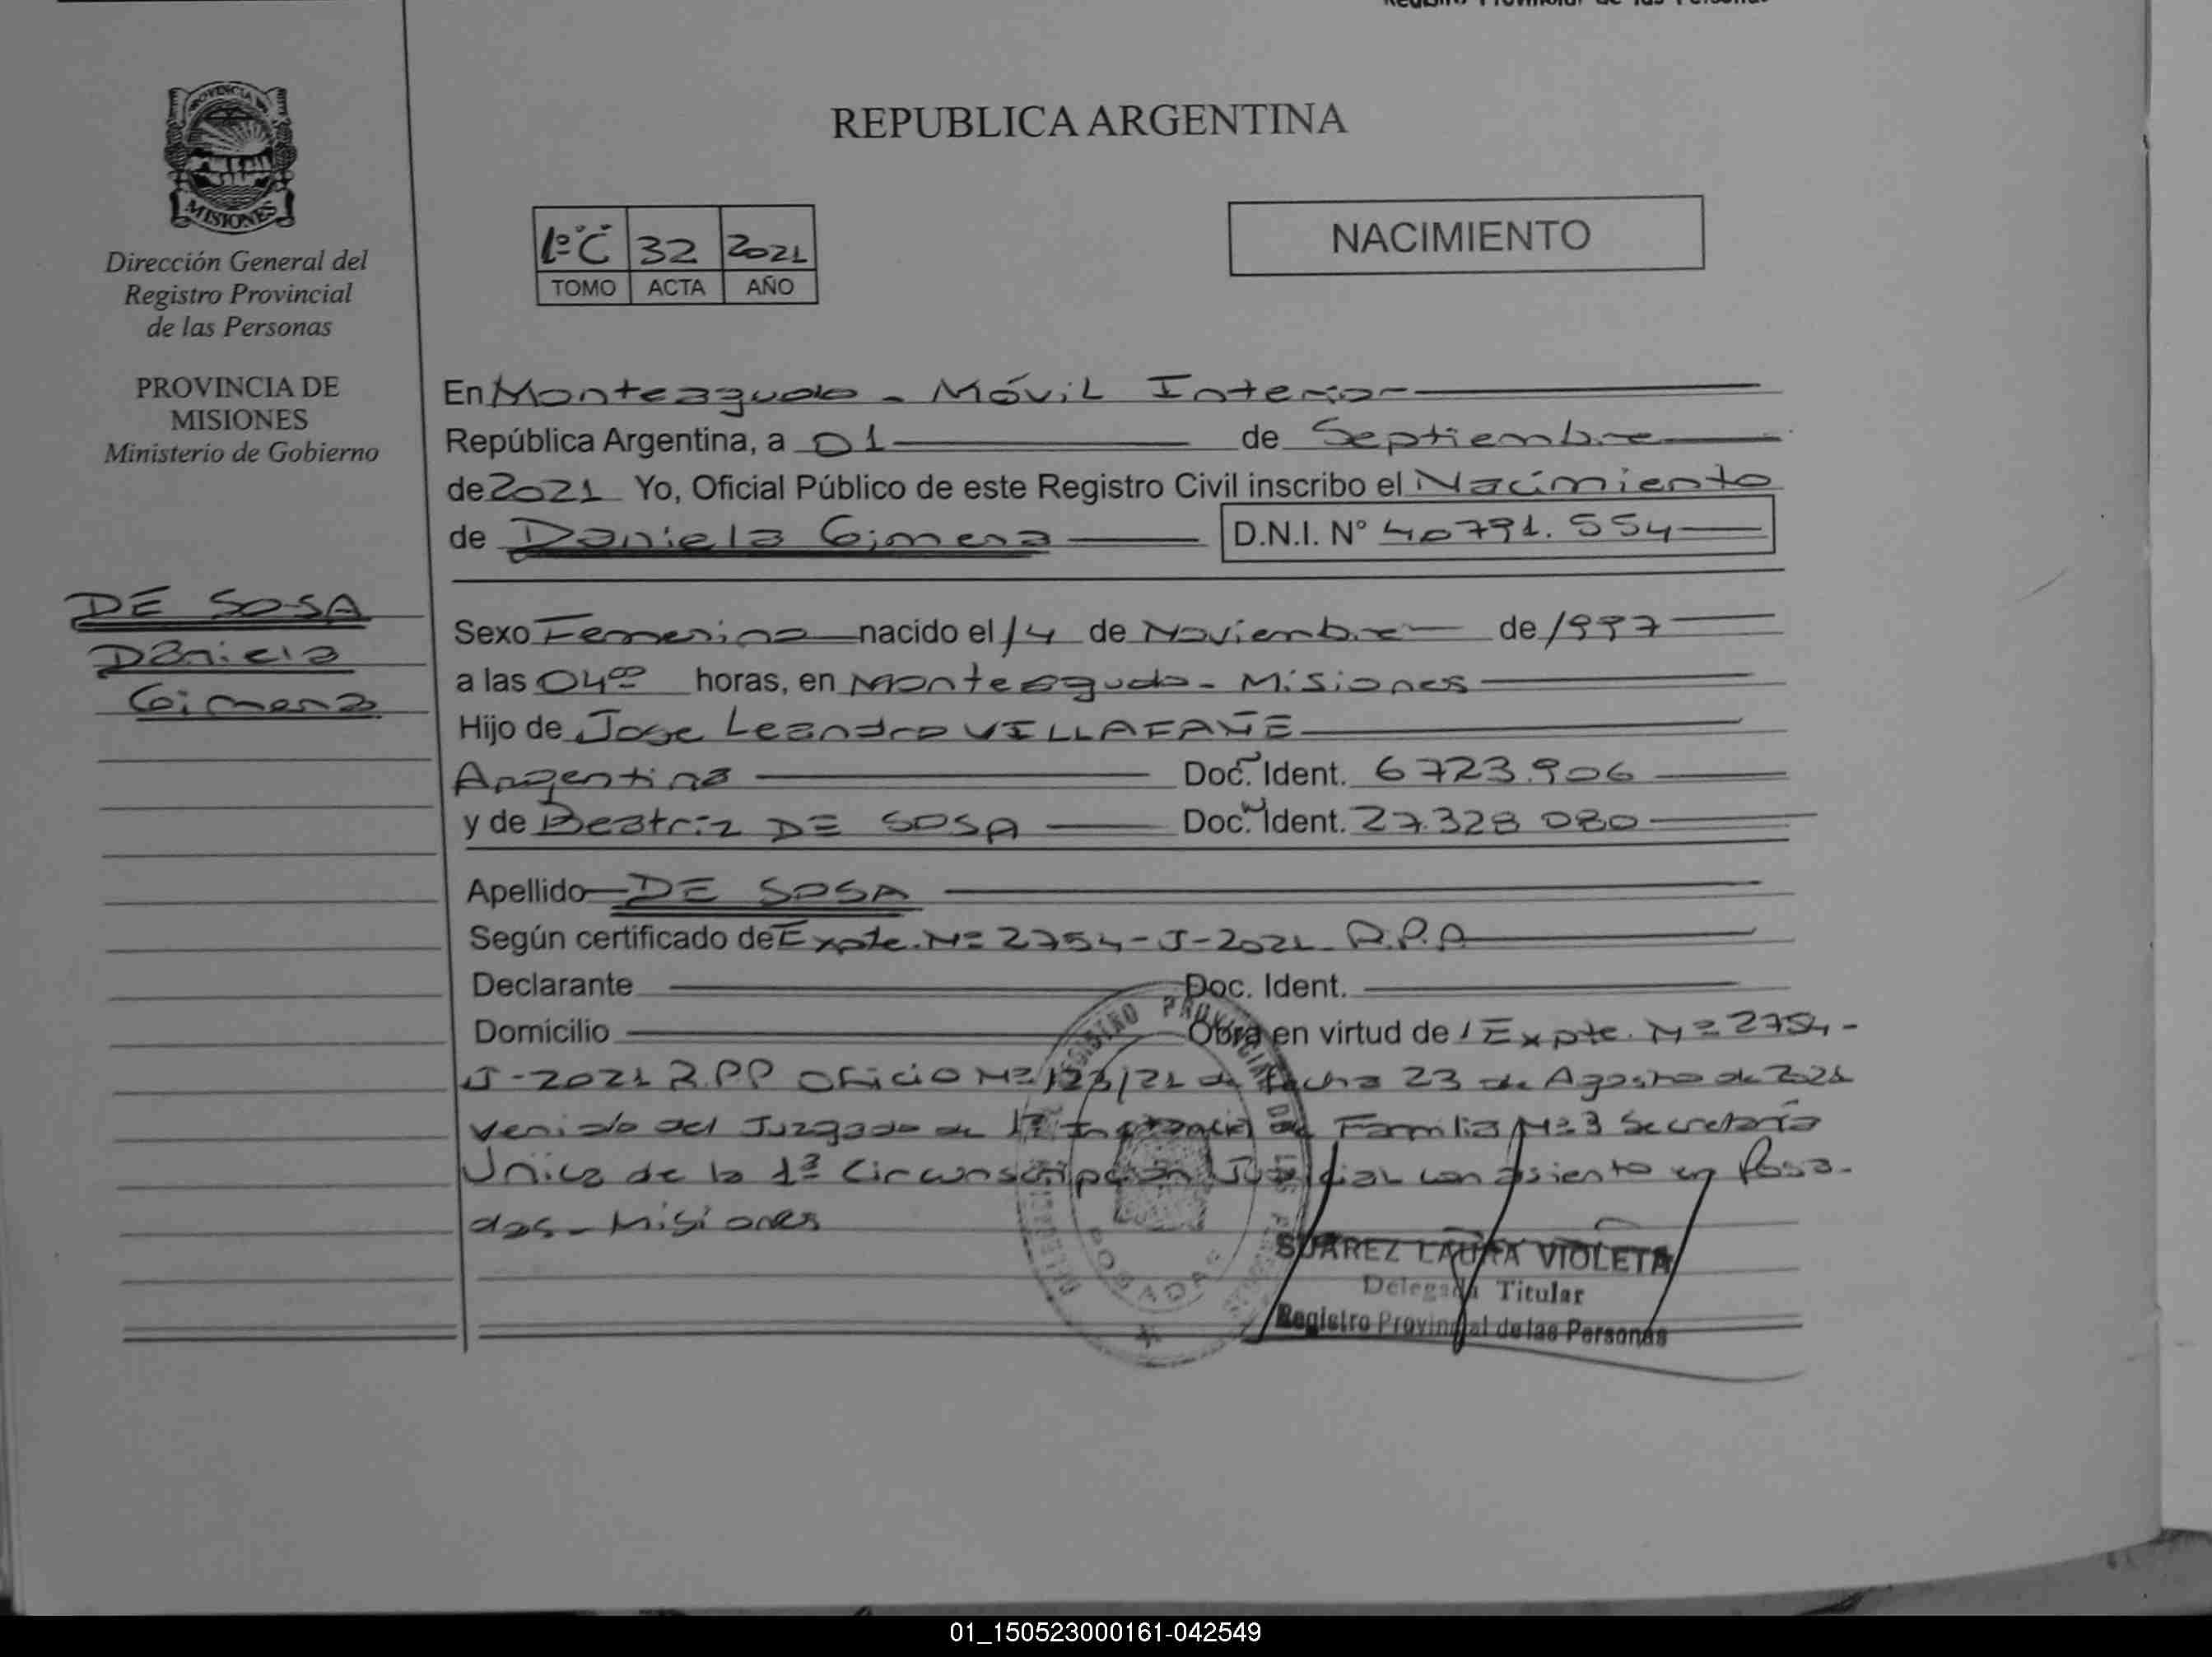 PROVINCIA DE
MISIONES
Dirección General del
Registro Provincial
de las Personas
PROVINCIA DE
MISIONES
Ministerio de Gobierno
DE SOSA
Daniela
Gimena
REPUBLICA ARGENTINA
1º "C" 32 2021
TOMO ACTA AÑO
NACIMIENTO
En Monteagudo - Móvil Interior
República Argentina, a 01 de Septiembre
de 2021 Yo, Oficial Público de este Registro Civil inscribo el Nacimiento
de Daniela Gimena D.N.I. N° 40791.554
Sexo Femenino nacido el 14 de Noviembre de 1997
a las 04 00 horas, en Monteagudo - Misiones
Hijo de Jose Leandro VILLAFAÑE
Argentina Doc. Ident. 6723.906
y de Beatriz DE SOSA Doc. Ident. 27.328 080
Apellido DE SOSA
Según certificado de Expte. Nº 2754-J-2021 R.P.P
Declarante Doc. Ident.
Domicilio Obra en virtud de / Expte. Nº 2754-
J-2021 R.P.P Oficio Nº 123/21 de fecha 23 de Agosto de 2021
venido del Juzgado de 1ª Instancia de Familia Nº 3 Secretaría
Única de la 1ª Circunscripción Judicial con asiento en Posa-
das - Misiones
REGISTRO PROVINCIAL DE LAS PERSONAS
POSADAS
SUAREZ LAURA VIOLETA
Delegada Titular
Registro Provincial de las Personas
01_150523000161-042549